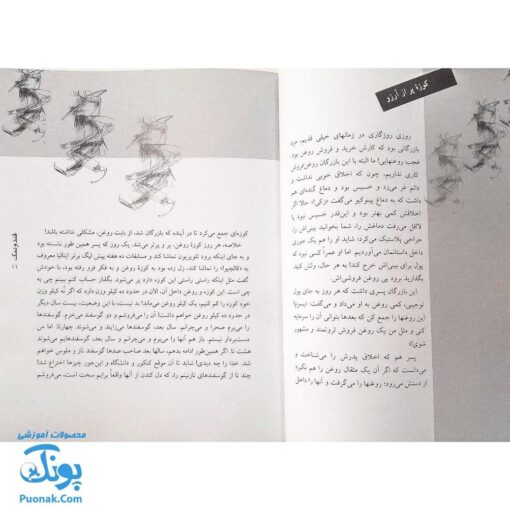 کوزهٔ پر از آرزو
روزی روزگاری در زمانهای خیلی قدیم، مرد
بازرگانی بود که کارش خرید و فروش روغن بود.
عجب روغنهایی! ما البته با این بازرگان روغن‌فروش
کاری نداریم، چون که اخلاق خوبی نداشت و
دائم غر می‌زد و خسیس بود و دماغ گنده‌ای هم
داشت که به دماغ پینوکیو می‌گفت «زکی!» حالا اگر
اخلاقش کمی بهتر بود و این‌قدر خسیس نبود یا
لااقل می‌رفت دماغش را، ببخشید بینی‌اش را
جراحی پلاستیک می‌کرد؛ شاید او را هم یک جوری
داخل داستانمان می‌آوردیم. اما او عمراً کسی نبود که
پول برای بینی‌اش خرج کند! به هر حال، ولش کنید
بگذارید برود پی روغن‌فروشی‌اش.
این بازرگان پسری داشت که هر روز به جای پول
توجیبی، کمی روغن به او می‌داد و می‌گفت: «پسرم!
این روغنها را جمع کن که بعدها بتوانی آنها را بازرگانی
کنی و مثل من یک روغن فروش ثروتمند و مشهور
شوی!»
پسر هم که اخلاق پدرش را می‌شناخت و
می‌دانست که اگر آن یک مثقال روغن را هم نگیرد
از دستش می‌رود؛ روغنها را می‌گرفت و آنها را داخل
کوزه‌ای جمع می‌کرد تا در آینده که بازرگان شد، از بابت روغن، مشکلی نداشته باشد!
خلاصه، هر روز کوزهٔ روغن، پر و پرتر می‌شد. یک روز که پسر همین طور نشسته بود
و به جای اینکه برود تلویزیون تماشا کند و مسابقات ده هفته پیش لیگ برتر ایتالیا معروف
به «کالچیو» را تماشا کند، زل زده بود به کوزهٔ روغن و به فکر فرو رفته بود، با خودش
گفت مثل اینکه راستی راستی این کوزه دارد پر می‌شود. بگذار حساب کنم ببینم چی به
چی است. از این همه روغن داخل آن، الان در حدود ده کیلو روغن دارم که اگر وزن
خود کوزه را کم کنیم، یک کیلو روغن می‌ماند! بد نیست، با این وضعیت، بیست سال دیگر
در حدود ده کیلو روغن خواهم داشت! آن را می‌فروشم و دو گوسفند می‌خرم. گوسفندها
را می‌برم صحرا و می‌چرانم و سال بعد، گوسفندها می‌زایند و می‌شوند چهارتا. اما من
دست‌بردار نیستم. باز هم آنها را می‌برم و می‌چرانم و سال بعد، گوسفندهایم می‌شوند
هشت تا. اگر همین‌طور ادامه بدهم، سالها بعد صاحب صدها گوسفند ناز و ملوس خواهم
شد. خدا را چه دیدی! شاید تا آن موقع کنکور و دانشگاه و این‌جور چیزها اختراع شد!
چند تا از گوسفندهای نازنینم را، که دل کندن از آنها واقعاً برایم سخت است، می‌فروشم
قندونمک
۱۱
محصولات آموزشی
پونک
Puonak.Com